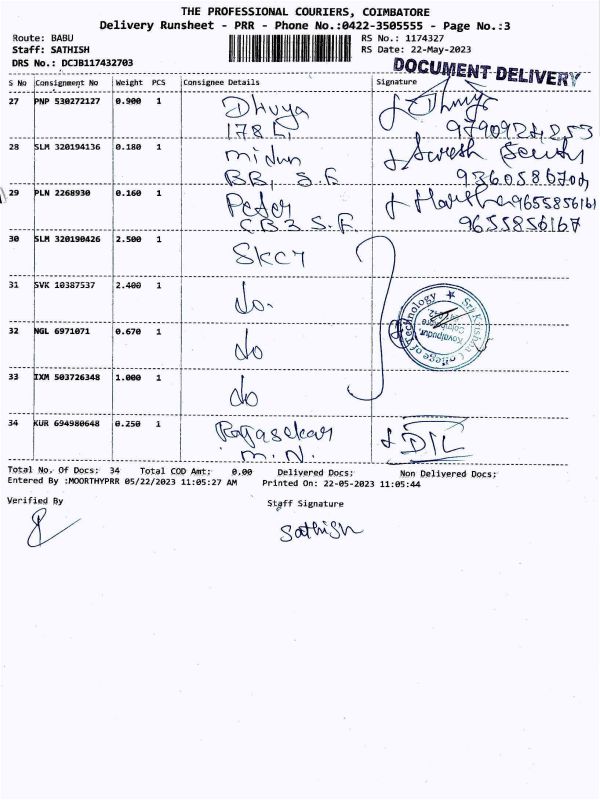 THE PROFESSIONAL COURIERS, COIMBATORE
Delivery Runsheet - PRR - Phone No.:0422-3505555 - Page No.:3
Route: BABU
RS No.: 1174327
Staff: SATHISH
RS Date: 22-May-2023
DRS No.: DCJB117432703
DOCUMENT DELIVERY
S No Consignment No Weight PCS Consignee Details Signature
27 PNP 530272127 0.900 1 Dhuya
178 L,
28 SLM 320194136 0.180 1 midun
BB, S.F
29 PLN 2268930 0.160 1 Peter 9655856161
CB3 S.F 9655856167
30 SLM 320190426 2.500 1 SKCT
31 SVK 10387537 2.400 1 do.
32 NGL 6971071 0.670 1 do
33 IXM 503726348 1.000 1 do
Sri Krishna College of Technology
Kovaipudur,
Coimbatore
34 KUR 694980648 0.250 1 Rajasekar
M.N.
Total No. Of Docs: 34 Total COD Amt: 0.00 Delivered Docs: Non Delivered Docs:
Entered By :MOORTHYPRR 05/22/2023 11:05:27 AM Printed On: 22-05-2023 11:05:44
Verified By
Staff Signature
Sathish